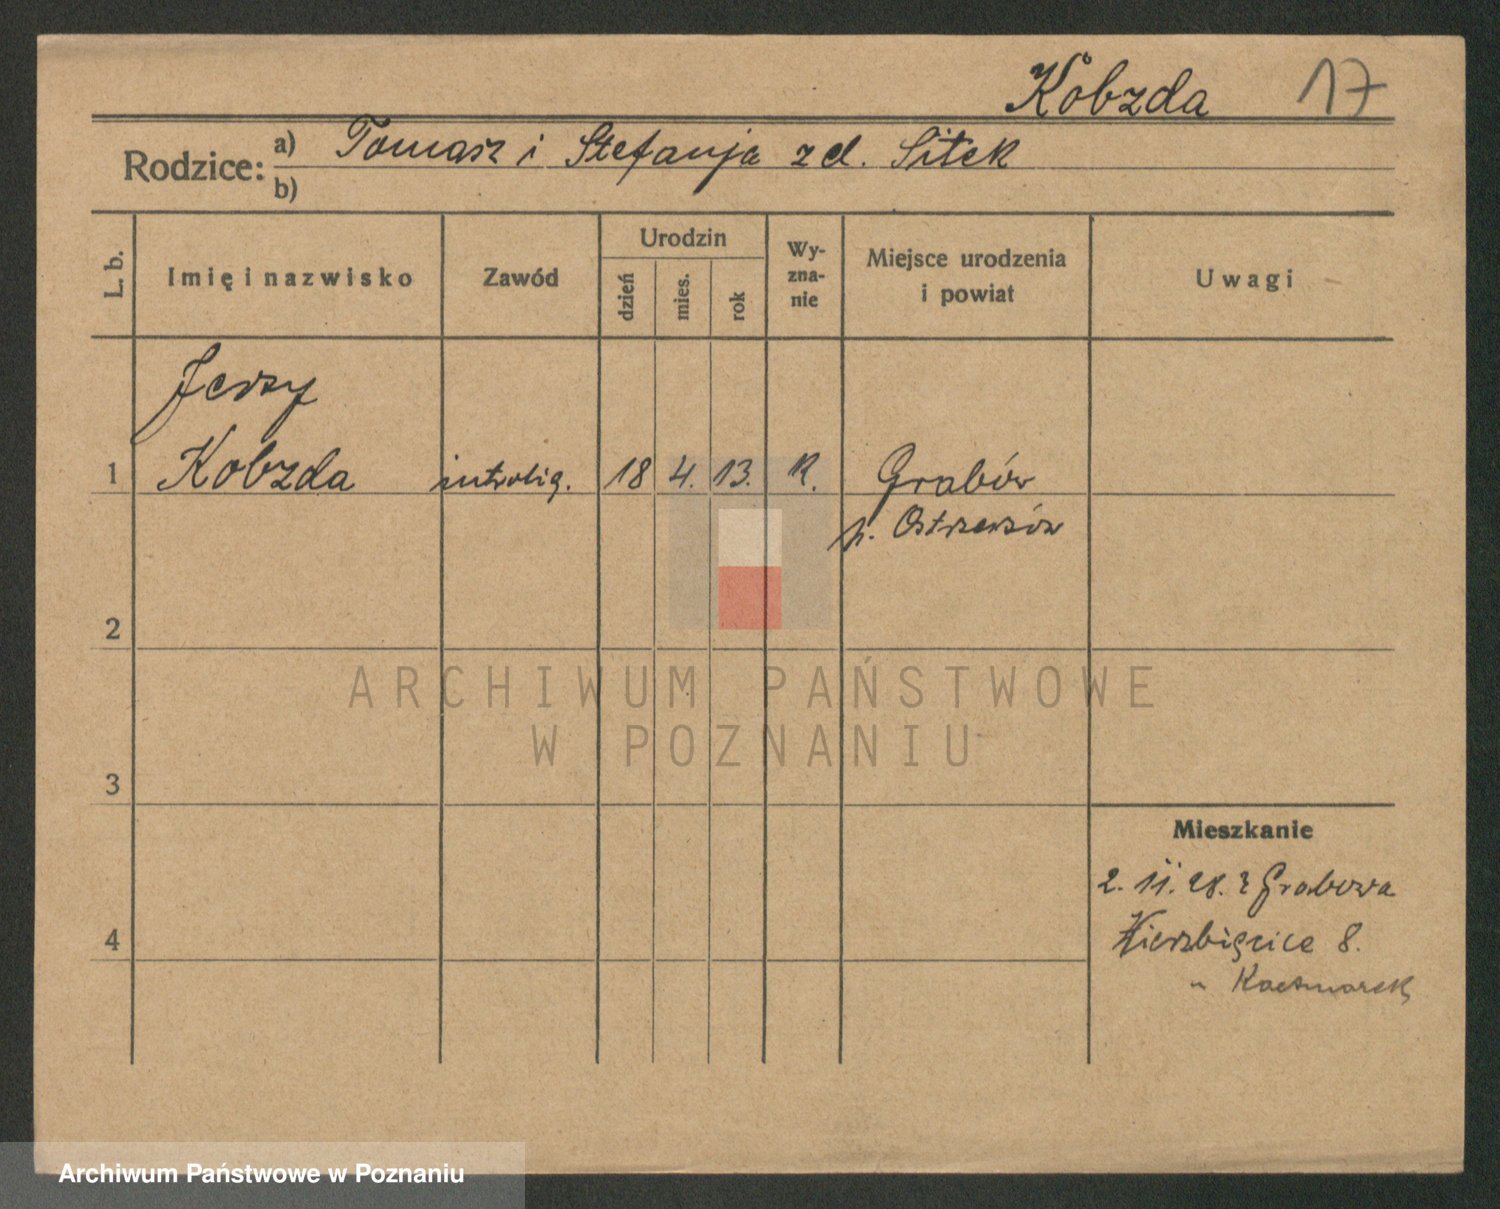 Kobzda 17
Rodzice: a) Tomasz i Stefanja zd. Sitek
b)
L. b. Imię i nazwisko Zawód Urodzin dzień mies. rok Wy-zna-nie Miejsce urodzenia i powiat Uwagi
Jerzy
1 Kobzda introlig. 18 4. 13. R. Grabów
p. Ostrzeszów
2
ARCHIWUM PAŃSTWOWE
W POZNANIU
3
Mieszkanie
2. 11. 28. z Grabowa
4 Wierzbięcice 8.
u Kaczmarek
Archiwum Państwowe w Poznaniu